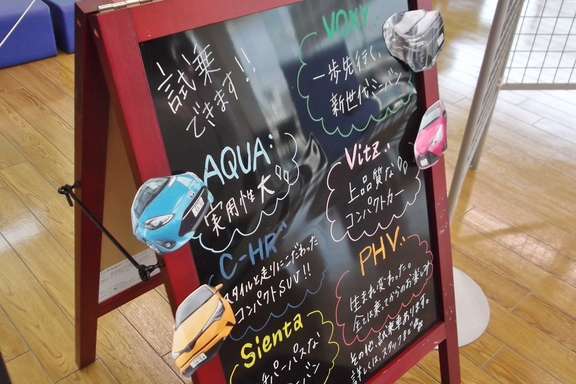 試乗
できます!!
VOXY:
一歩先行く、
新世代ミニバン
AQUA:
実用性大!!
Vitz:
上品質な
コンパクトカー
C-HR:
スタイルと走りにこだわった
コンパクトSUV!!
PHV:
生まれ変わった。
Sienta
ミニバン
その他、試乗車あります。
詳しくは、スタッフまで